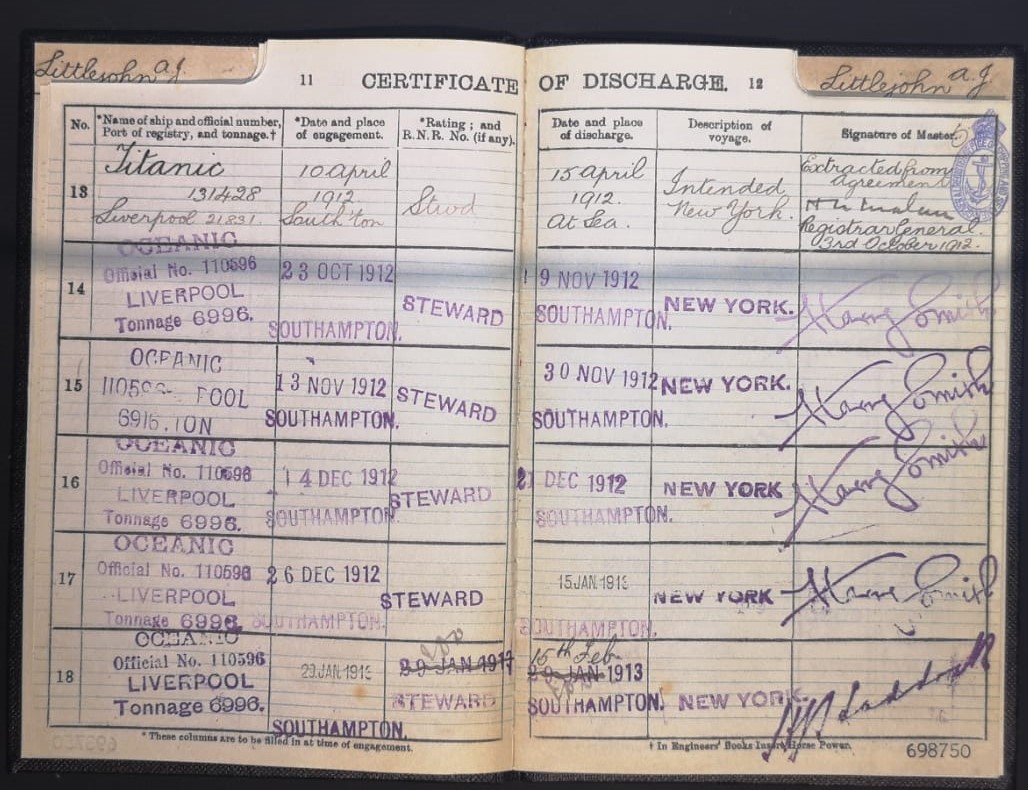 Littlejohn a.J.
11 CERTIFICATE OF DISCHARGE. 12
Littlejohn a.J.
No.
*Name of ship and official number, Port of registry, and tonnage.†
*Date and place of engagement.
*Rating; and R.N.R. No. (if any).
Date and place of discharge.
Description of voyage.
Signature of Master.
13
Titanic
131428
Liverpool 21831.
10 april
1912.
South'ton
Stwd
15 april
1912.
At Sea.
Intended
New York.
Extracted from
agreement
Registrar General.
3rd October 1912.
14
OCEANIC
Official No. 110596
LIVERPOOL
Tonnage 6996.
23 OCT 1912
SOUTHAMPTON.
STEWARD
9 NOV 1912
SOUTHAMPTON.
NEW YORK.
Harry Smith
15
OCEANIC
POOL
13 NOV 1912
SOUTHAMPTON.
STEWARD
30 NOV 1912
SOUTHAMPTON.
NEW YORK.
Harry Smith
16
OCEANIC
Official No. 110596
LIVERPOOL
Tonnage 6996.
14 DEC 1912
SOUTHAMPTON.
STEWARD
DEC 1912
SOUTHAMPTON.
NEW YORK
Harry Smith
17
OCEANIC
Official No. 110596
LIVERPOOL
Tonnage 6996.
26 DEC 1912
SOUTHAMPTON.
STEWARD
15 JAN 1913
SOUTHAMPTON.
NEW YORK
Harry Smith
18
OCEANIC
Official No. 110596
LIVERPOOL
Tonnage 6996.
29 JAN 1913
SOUTHAMPTON.
STEWARD
15th Feb.
29 JAN 1913
SOUTHAMPTON.
NEW YORK.
* These columns are to be filled in at time of engagement.
† In Engineers' Books Insert Horse Power.
698750